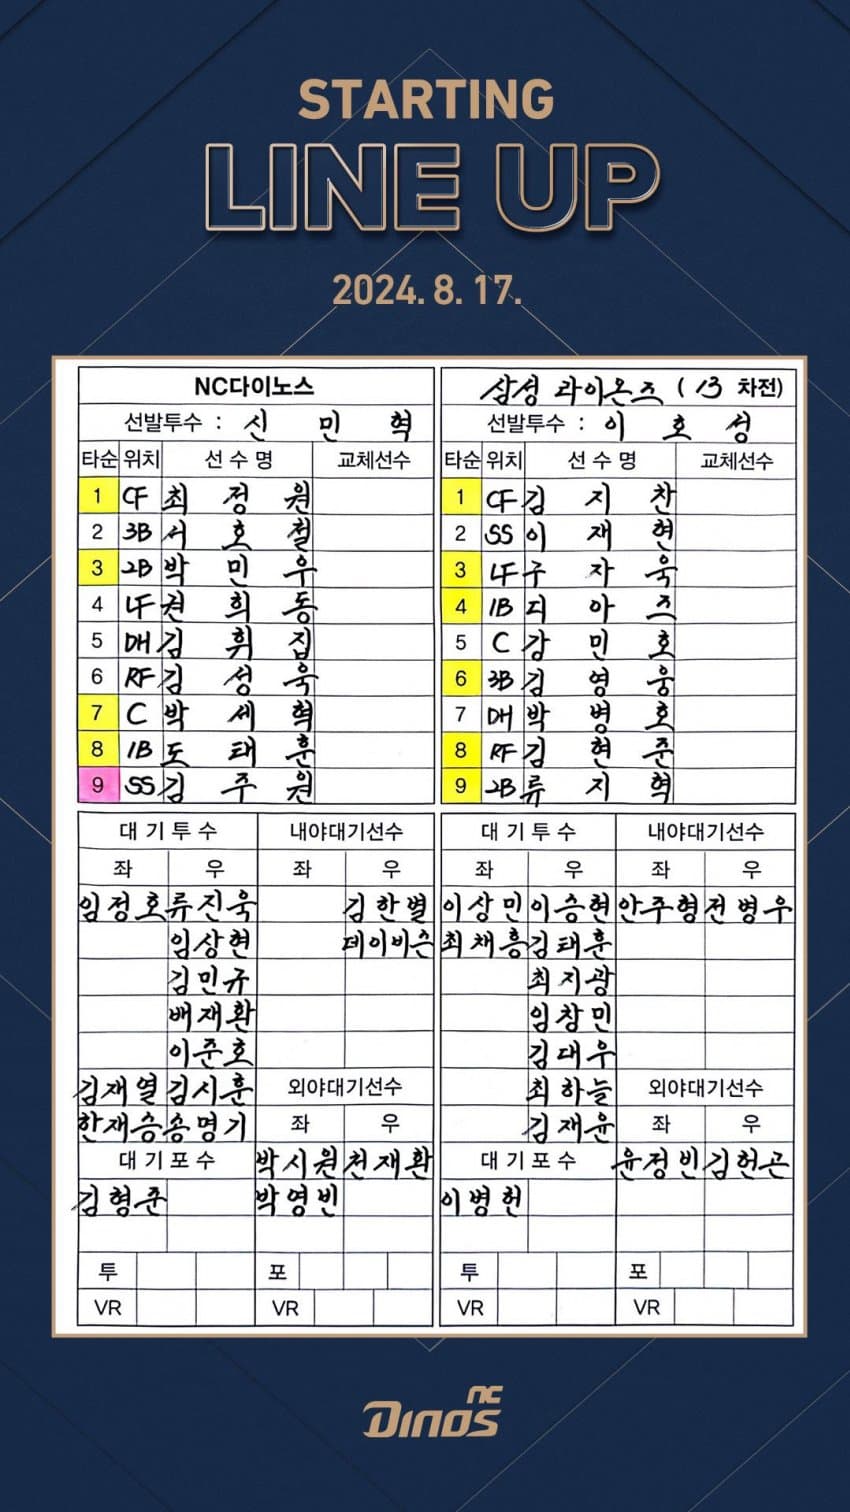 STARTING
LINE UP
2024. 8. 17.
NC다이노스
선발투수 : 신 민 혁
타순 위치 선 수 명 교체선수
1 CF 최 정 원
2 3B 서 호 철
3 2B 박 민 우
4 LF 권 희 동
5 DH 김 휘 집
6 RF 김 성 욱
7 C 박 세 혁
8 1B 도 태 훈
9 SS 김 주 원
대 기 투 수 내야대기선수
좌 우 좌 우
임정호 류진욱 김한별
임상현 데이비슨
김민규
배재환
이준호
김재열 김시훈 외야대기선수
한재승 송명기 좌 우
대 기 포 수 박시원 천재환
김형준 박영빈
투 포
VR VR
삼성 라이온즈 ( 13 차전)
선발투수 : 이 호 성
타순 위치 선 수 명 교체선수
1 CF 김 지 찬
2 SS 이 재 현
3 LF 구 자 욱
4 1B 디 아 즈
5 C 강 민 호
6 3B 김 영 웅
7 DH 박 병 호
8 RF 김 현 준
9 2B 류 지 혁
대 기 투 수 내야대기선수
좌 우 좌 우
이상민 이승현 안주형 전병우
최채흥 김태훈
최지광
임창민
김대우
최하늘 외야대기선수
김재윤 좌 우
대 기 포 수 윤정빈 김헌곤
이병헌
투 포
VR VR
NC
Dinos